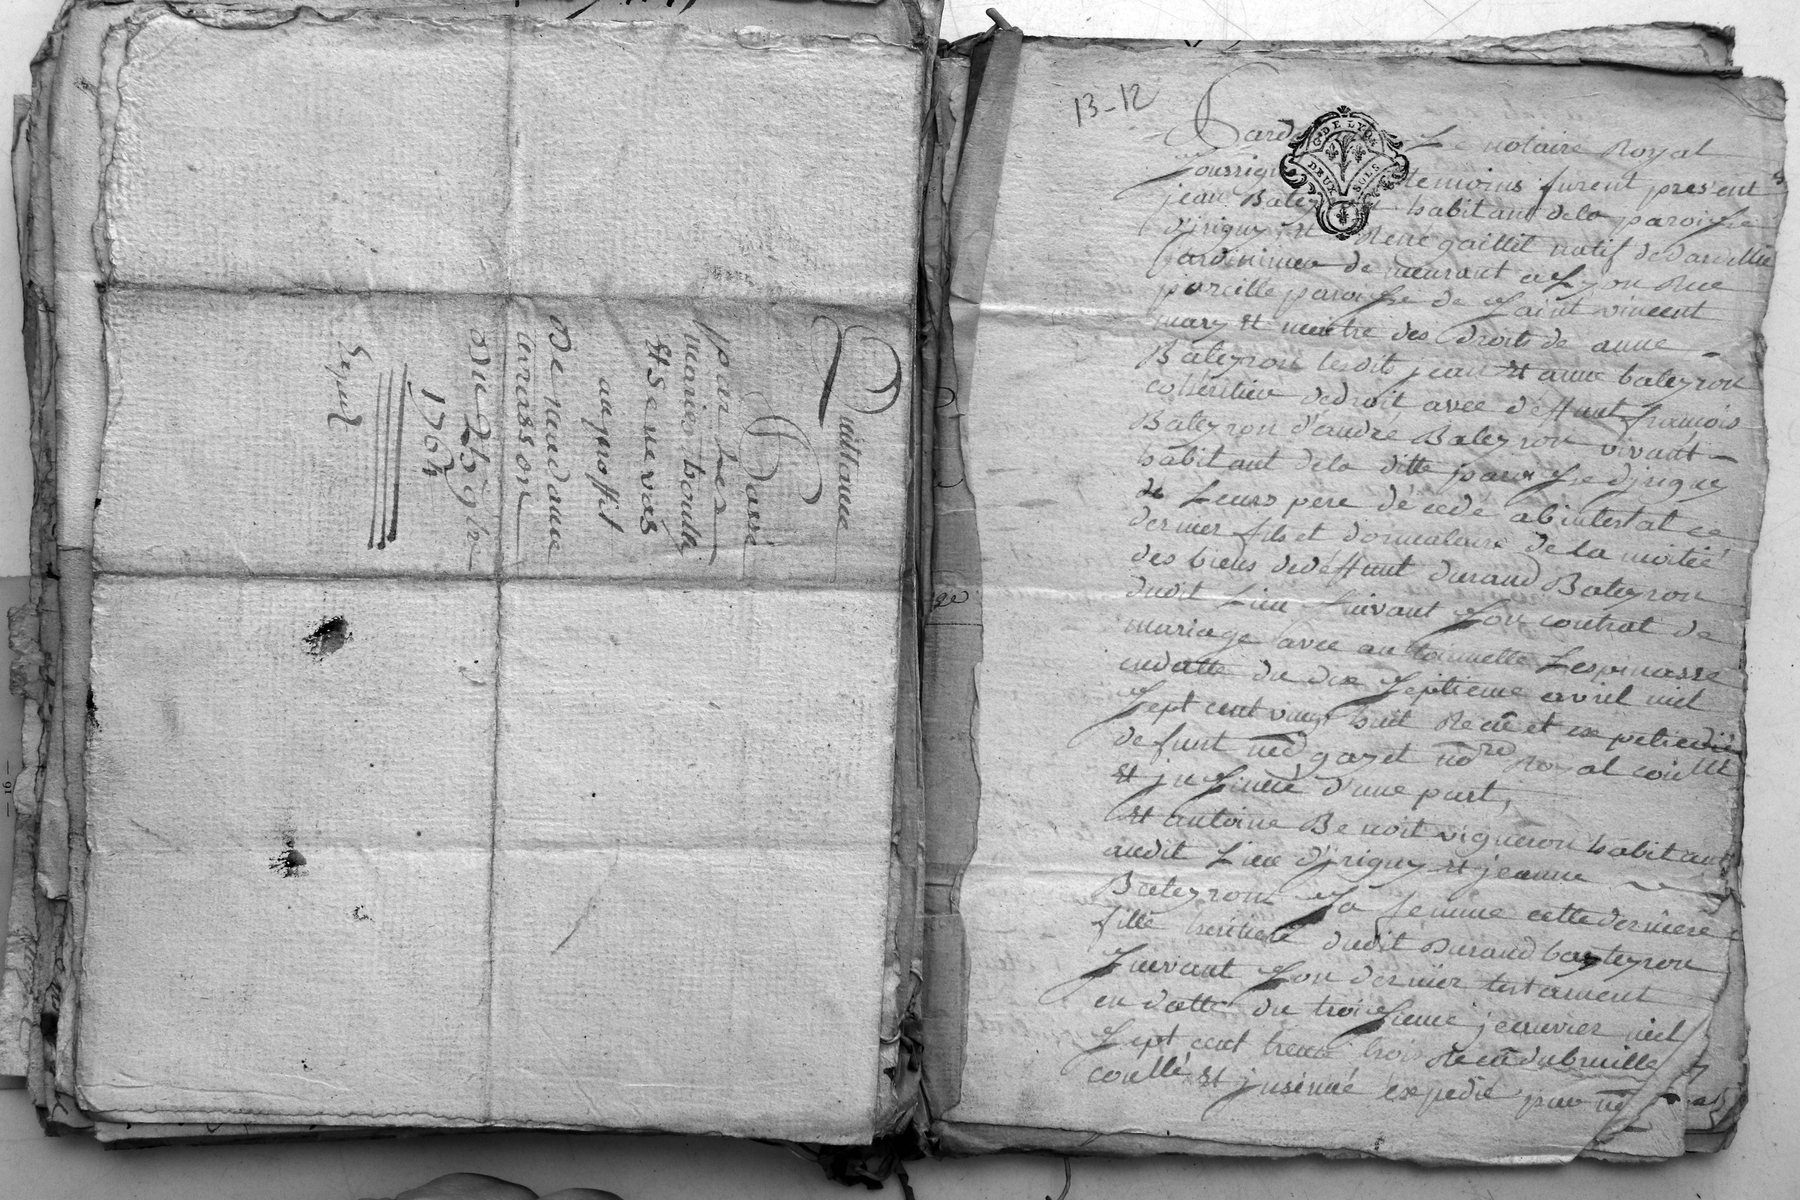 Quittance
Passé
par les
maries boulli
et Senevas
au proffit
De maudame
terrasson
Du 25 9bre
1764
13-12
Pard Le notaire Royal
soussigné temoins furent present
jean Baleyron habitant dela paroisse
djrigny et René gaillit natif de dardillie
jardinnier demeurant a Lyon Rue
parcille paroisse de saint vincent
mary et maitre des droits de anne
Baleyron lesdits jean et anne baleyron
coheritier dedroit avec deffunt françois
Baleyron d'endre Baleyron vivant
habitant dela ditte paroisse djrigny
de Leurs pere décédé abintestat ce
dernier fils et donnataire de la moitié
des biens dedeffunt durand Baleyron
dudit Lieu suivant son contrat de
mariage avec anttoinette Lespinasse
endatte du dix septieme avril mil
sept cent vingt huit Recû et expetiedié
defunt me gayet nore royal contllé
et jnsinué d'une part,
et antoine Benoit vigneron habitant
audit Lieu d'jrigny et jeanne
Baleyron sa femme cette derniere
fille heritiere dudit Durand bayleyron
suivant son dernier testament
en datte du troisieme jeanvier mil
sept cent trente trois Recû dubruille
contllé et jnsinué éxpedié par me
G. DE LYON
DEUX SOLS
16